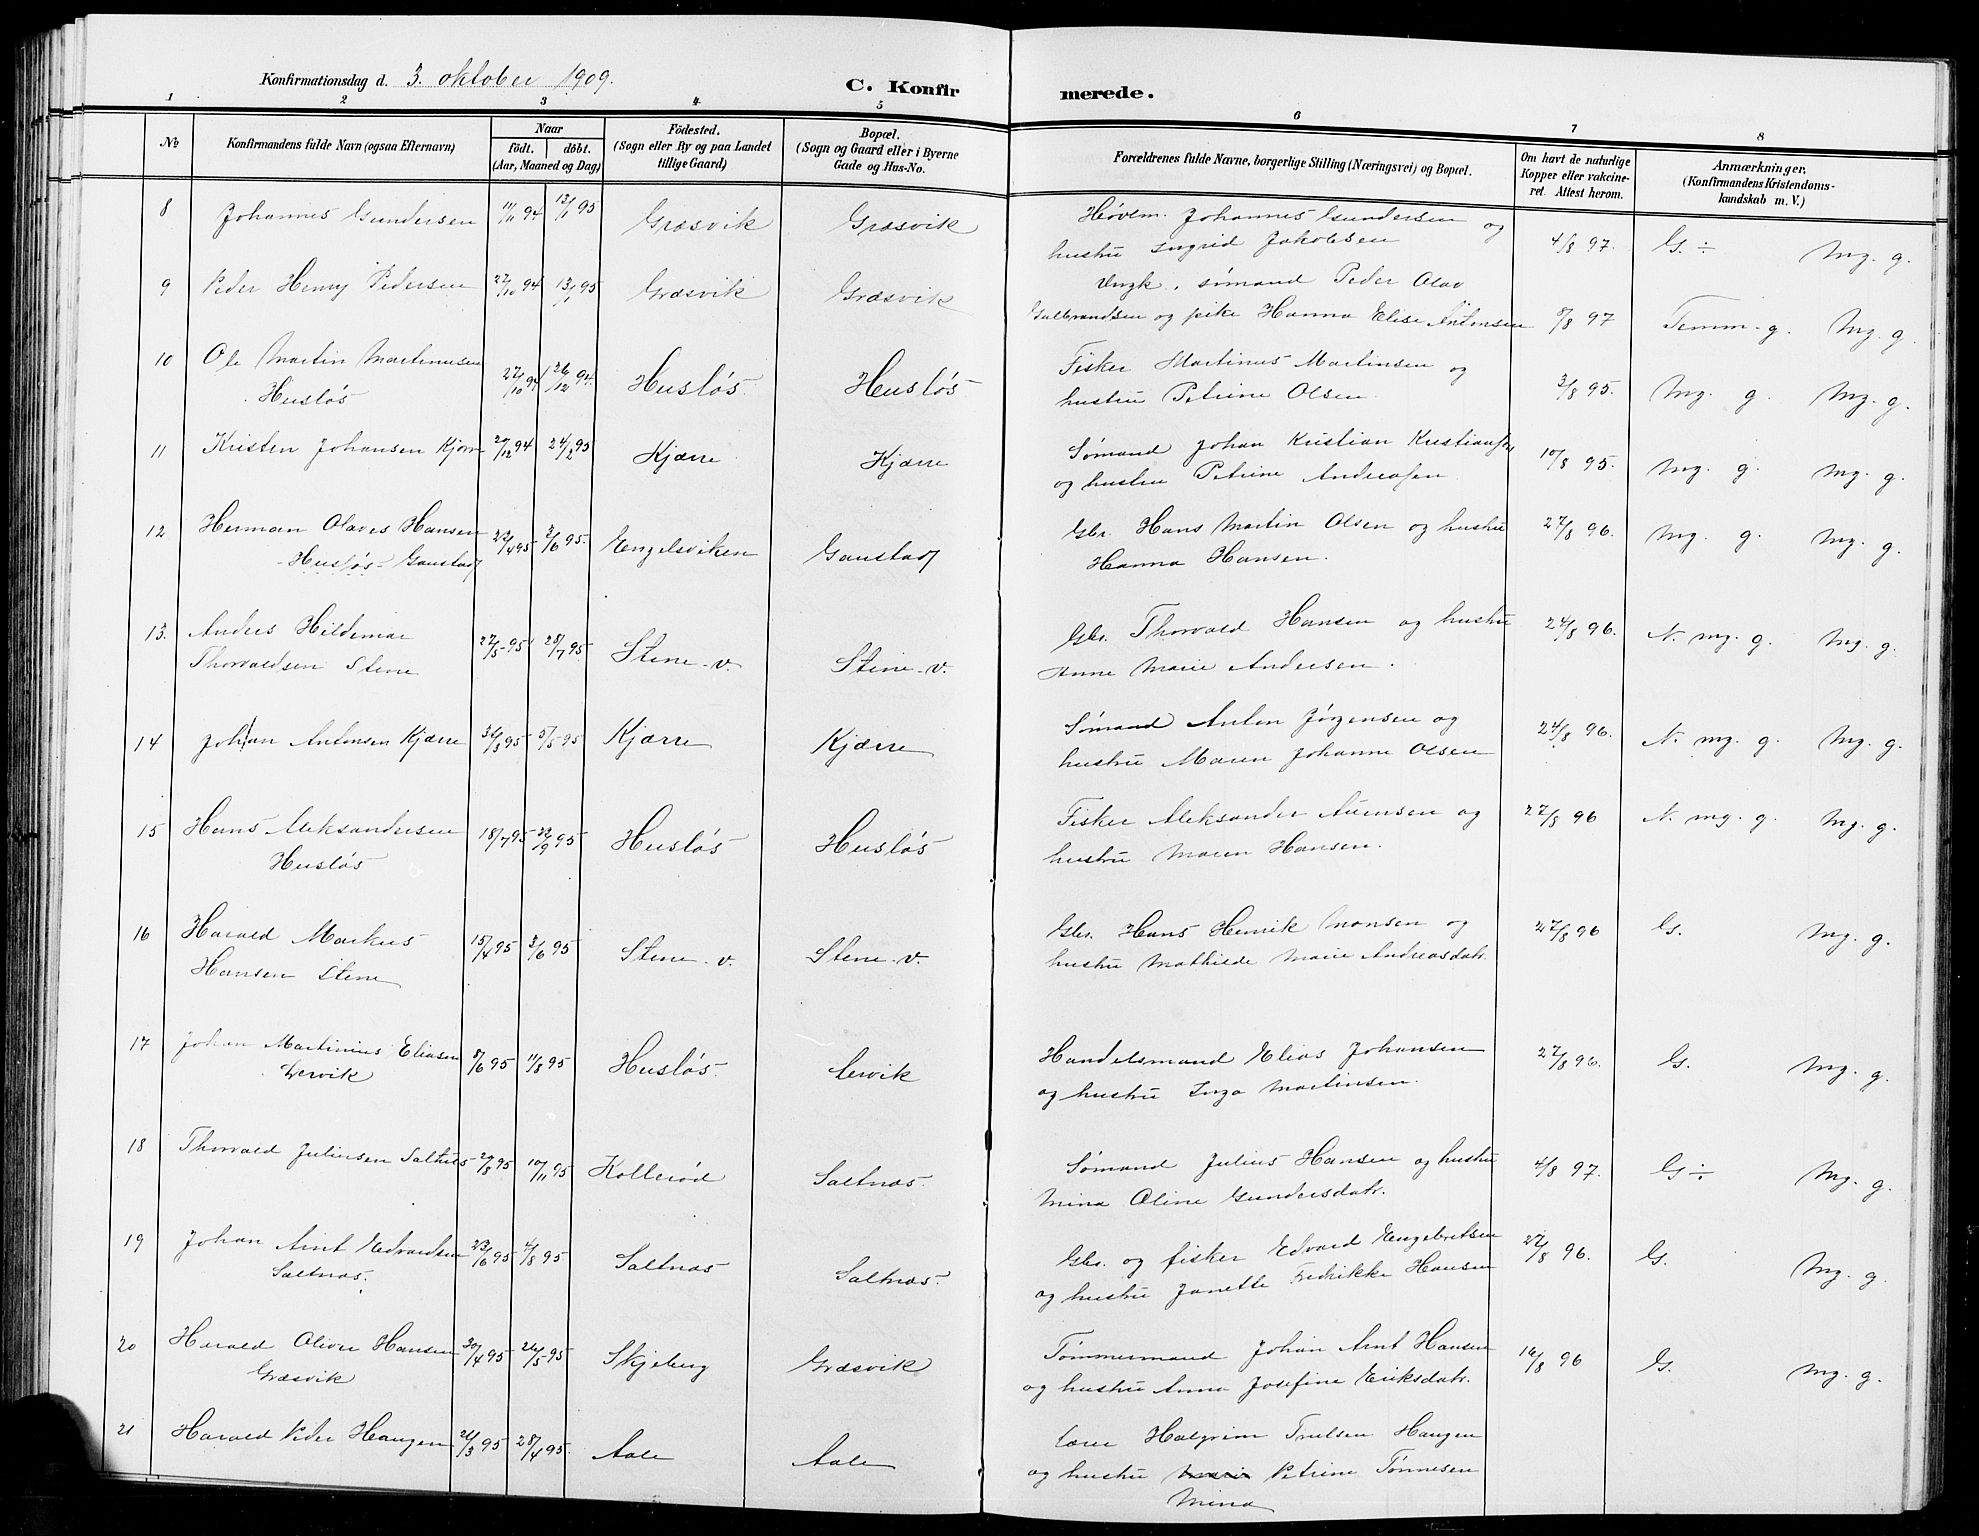 Konfirmationsdag d. 3. oktober 1909.
C. Konfirmerede.
1 2 3 4 5 6 7 8
No
Konfirmandens fulde Navn (ogsaa Efternavn)
Naar
födt. döbt.
(Aar, Maaned og Dag)
Födested.
(Sogn eller By og paa Landet
tillige Gaard)
Bopæl.
(Sogn og Gaard eller i Byerne
Gade og Hus-No.
Forældrenes fulde Navne, borgerlige Stilling (Næringsvei) og Bopæl.
Om havt de naturlige
Kopper eller vakcine-
ret. Attest herom.
Anmærkninger.
(Konfirmandens Kristendoms-
kundskab m. V.)
8 Johannes Gundersen 11/11 94 13/1 95 Græsvik Græsvik Høvlm. Johannes Gundersen og 4/8 97. G ÷ Mg. g.
hustru Ingrid Jakobsen
9 Peder Henry Pedersen 27/10 94 13/1 95 Græsvik Græsvik Ungk. sømand Peder Olav
Gulbrandsen og pike Hanna Elise Antonsen 5/8 97 Temm. g. Mg. g.
10 Ole Martin Martinusen 27/10 94 26/12 94. Husløs Husløs Fisker Martinus Martinsen og 3/8 95. Mg. g. Mg. g.
Husløs hustru Petrine Olsen
11 Kristen Johansen Kjærre 27/12 94 24/2 95 Kjærre Kjærre Sømand Johan Kristian Kristiansen 10/8 95. Mg. g. Mg. g.
og hustru Petrine Andreasen
12 Herman Olaves Hansen 22/4 95 3/6 95. Engelsviken Gaustad Gbr. Hans Martin Olsen og hustru 27/8 96. Mg. g. Mg. g.
Husløs Gaustad Hanna Hansen.
13. Anders Hildemar 27/5 95 28/7 95 Stene v. Stene v. Gbr. Thorvald Hansen og hustru 24/8 96. N. mg. g. Mg. g.
Thorvaldsen Stene Anne Marie Andersen.
14 Johan Antonsen Kjærre 31/3 95 5/5 95 Kjærre Kjærre Sømand Anton Jørgensen og 24/8 96. N. mg. g. Mg. g.
hustru Maren Johanne Olsen
15 Hans Aleksandersen 18/7 95 22/9 95 Husløs Husløs Fisker Aleksander Auensen og 27/8 96 N. mg. g. Mg. g.
Husløs hustru Maren Hansen.
16 Harald Markus 15/4 95 3/6 95 Stene v. Stene v. Gbr. Hans Henrik Monsen og 27/8 96 G. Mg. g.
Hansen Stene hustru Mathilde Marie Andreasdatr.
17 Johan Martinius Eliasen 8/6 95 11/8 95 Husløs. Lervik Handelsmand Elias Johansen 27/8 96. G. Mg. g.
Lervik og hustru Inga Martinsen.
18 Thorvald Juliusen Saltnes 27/8 95 10/11 95 Kollerød Saltnæs. Sømand Julius Hansen og hustru 4/8 97. G ÷ Mg. g.
Mina Oline Gundersdatr.
19 Johan Arnt Edvardsen 23/6 95 4/8 95 Saltnæs Saltnæs. Gbr. og fisker Edvard Engebretsen 27/8 96. G. Mg. g.
Saltnæs. og hustru Janette Fredrikke Hansen
20 Harald Oliver Hansen 30/4 95 26/5 95 Skjeberg Græsvik Tømmermand Johan Arnt Hansen 16/8 96 G. Mg. g.
Græsvik og hustru Anna Josefine Eriksdatr.
21 Harald Peder Haugen 21/3 95 28/4 95. Aale Aale Lærer Halgrim Trulsen Haugen
og hustru Marie Petrine Tønnesen
Mina